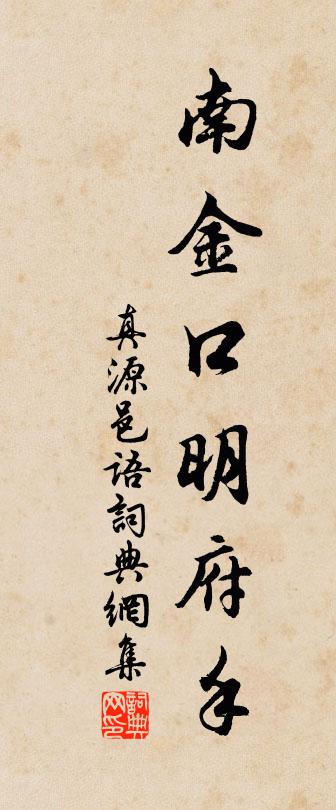 南金口明府手
真源邑語詞典網集
詞典
网印